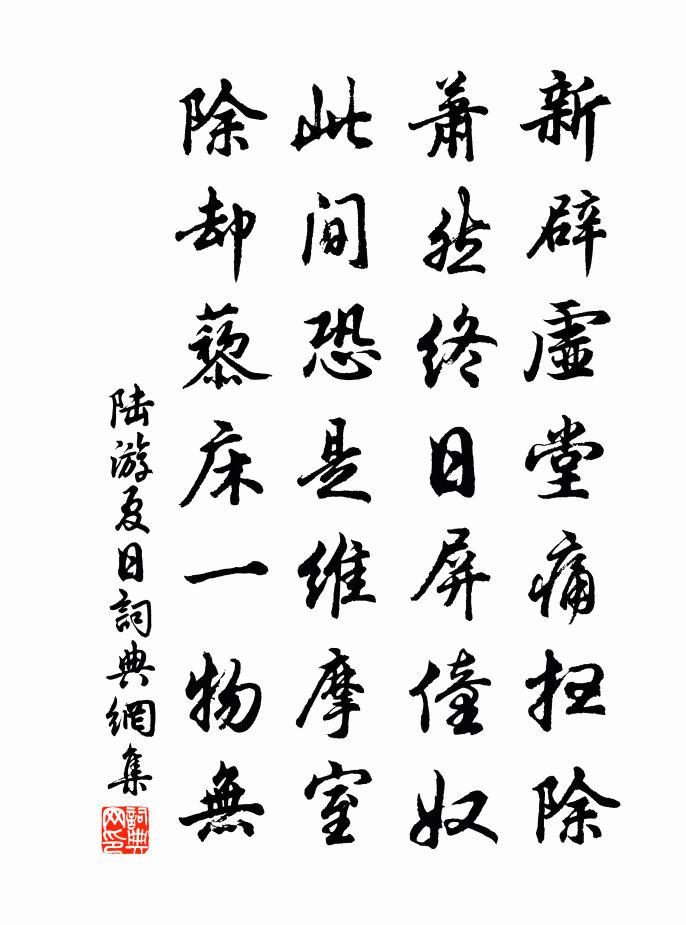 新辟虚堂痛扫除
萧然终日屏僮奴
此间恐是维摩室
除却藜床一物無
陆游夏日詞典網集
詞典网印